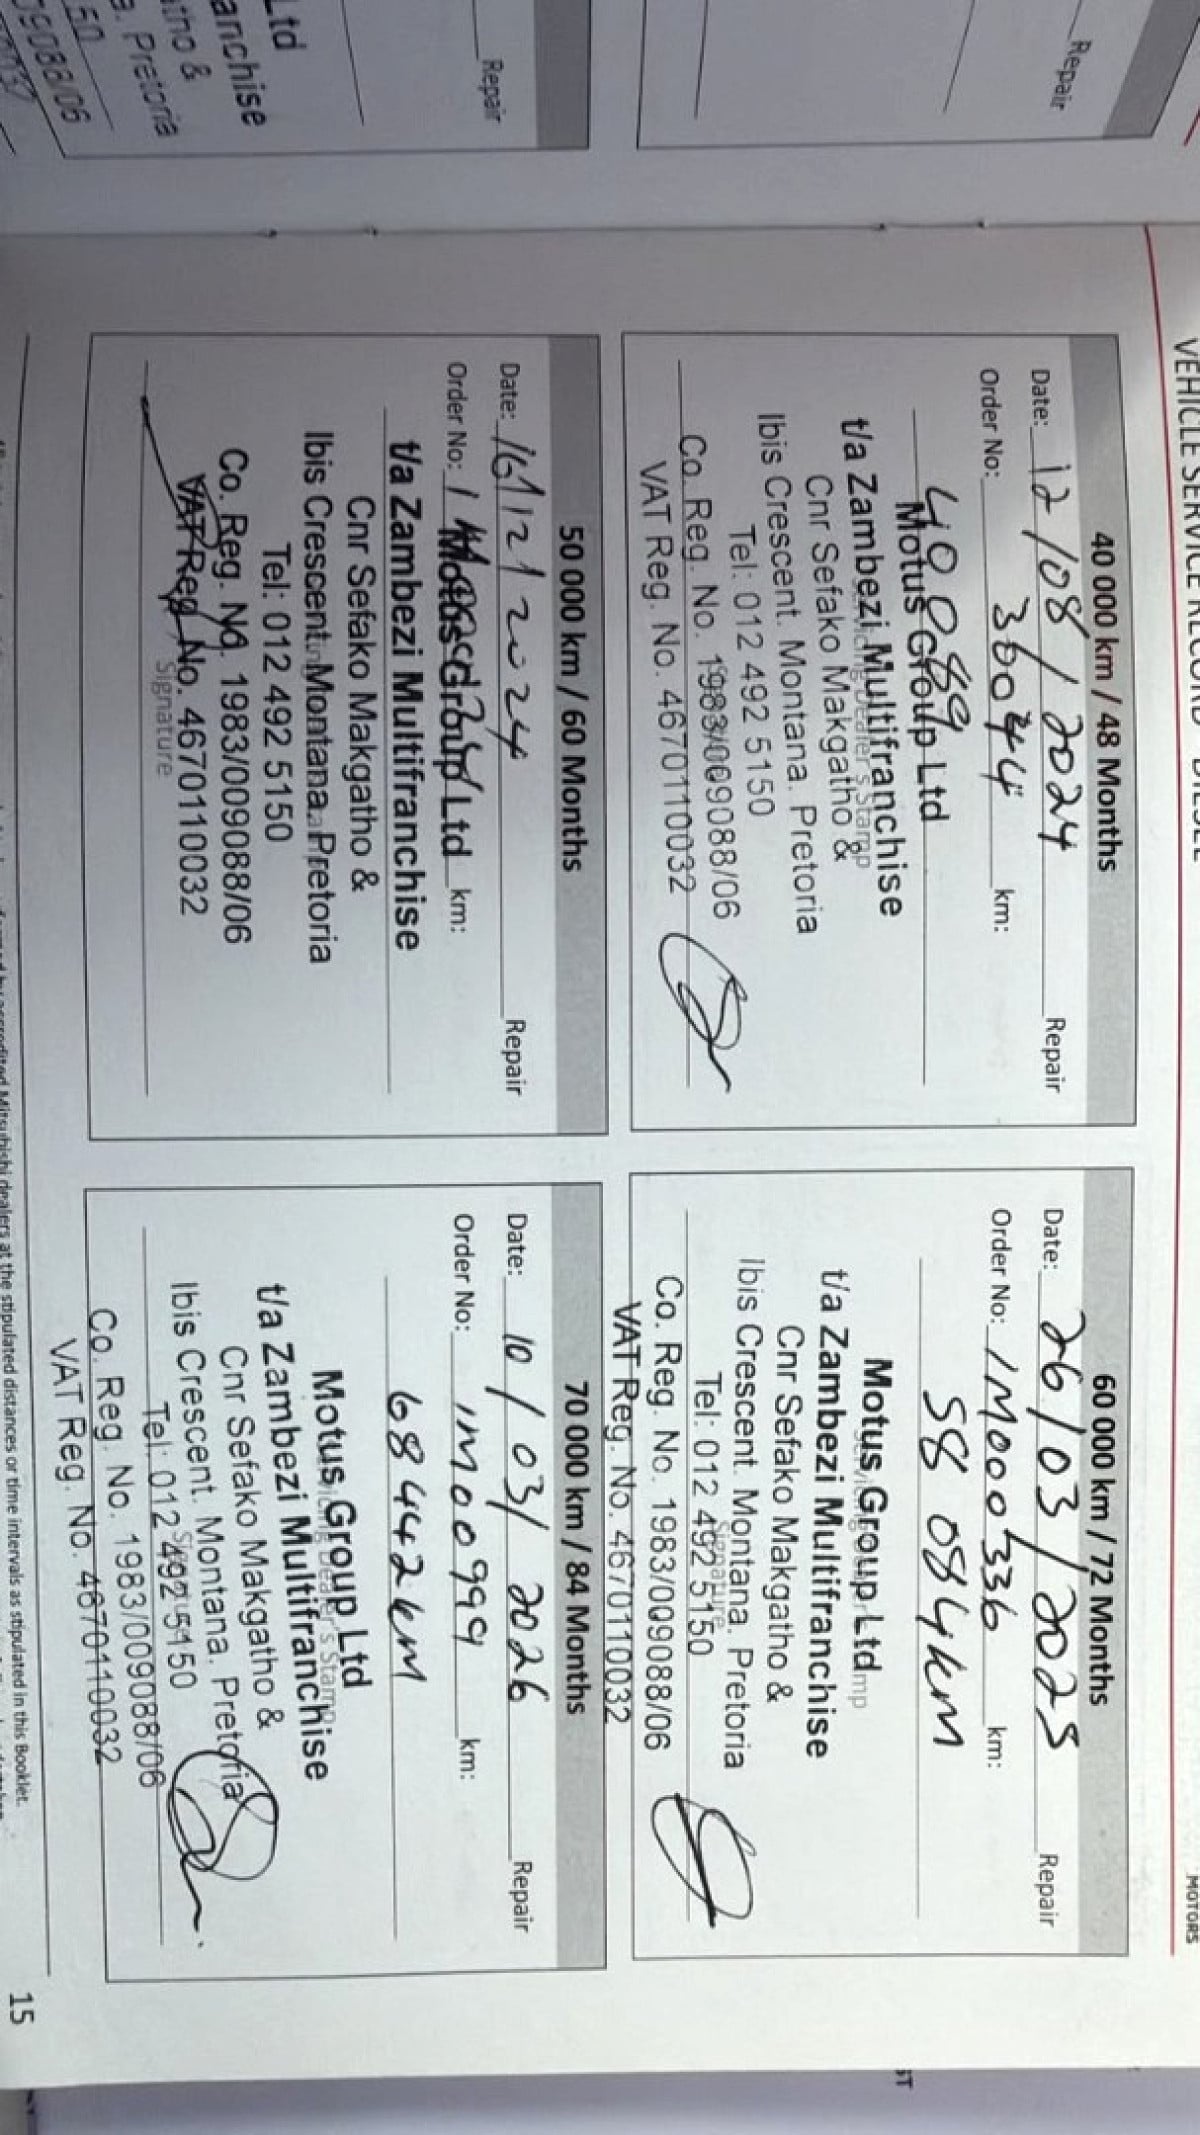 VEHICLE SERVICE RECORD - DIESEL
MOTORS
Repair
Repair
Ltd
anchise
tho &
a. Pretoria
50
09088/06
40 000 km / 48 Months
Date: 12/08/2024 Repair
Order No: 36044 km:
40 089
Motus Group Ltd
t/a Zambezi Multifranchise
Cnr Sefako Makgatho &
Ibis Crescent. Montana. Pretoria
Tel: 012 492 5150
Co. Reg. No. 1983/009088/06
VAT Reg. No. 4670110032
60 000 km / 72 Months
Date: 26/03/2025 Repair
Order No: 1M000336 km:
58 084km
Motus Group Ltd
t/a Zambezi Multifranchise
Cnr Sefako Makgatho &
Ibis Crescent. Montana. Pretoria
Tel: 012 492 5150
Signature
Co. Reg. No. 1983/009088/06
VAT Reg. No. 4670110032
50 000 km / 60 Months
Date: 16/12/2024 Repair
Order No: km:
Motus Group Ltd
t/a Zambezi Multifranchise
Cnr Sefako Makgatho &
Ibis Crescent. Montana. Pretoria
Tel: 012 492 5150
Co. Reg. No. 1983/009088/06
VAT Reg. No. 4670110032
Signature
70 000 km / 84 Months
Date: 10/03/2026 Repair
Order No: 1M00999 km:
68442km
Motus Group Ltd
t/a Zambezi Multifranchise
Cnr Sefako Makgatho &
Ibis Crescent. Montana. Pretoria
Tel: 012 492 5150
Co. Reg. No. 1983/009088/06
VAT Reg. No. 4670110032
accredited Mitsubishi dealers at the stipulated distances or time intervals as stipulated in this Booklet.
15